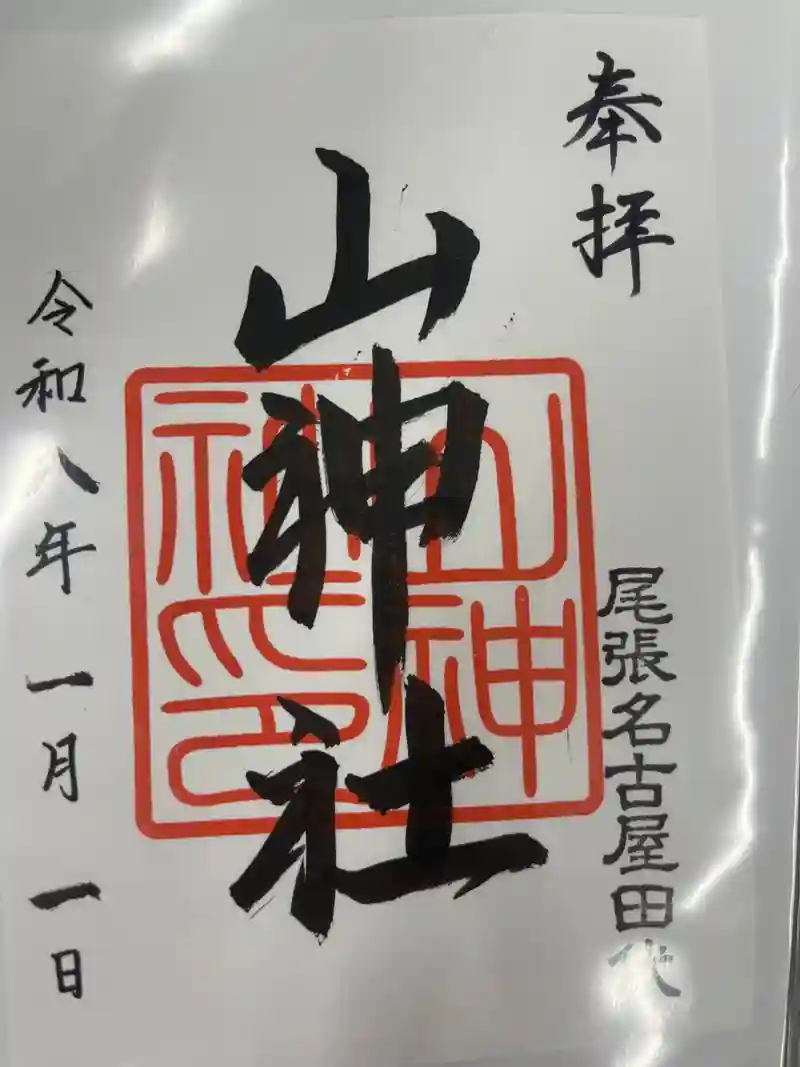 奉拝
尾張名古屋田代
山神社
山神
社印
令和八年一月一日